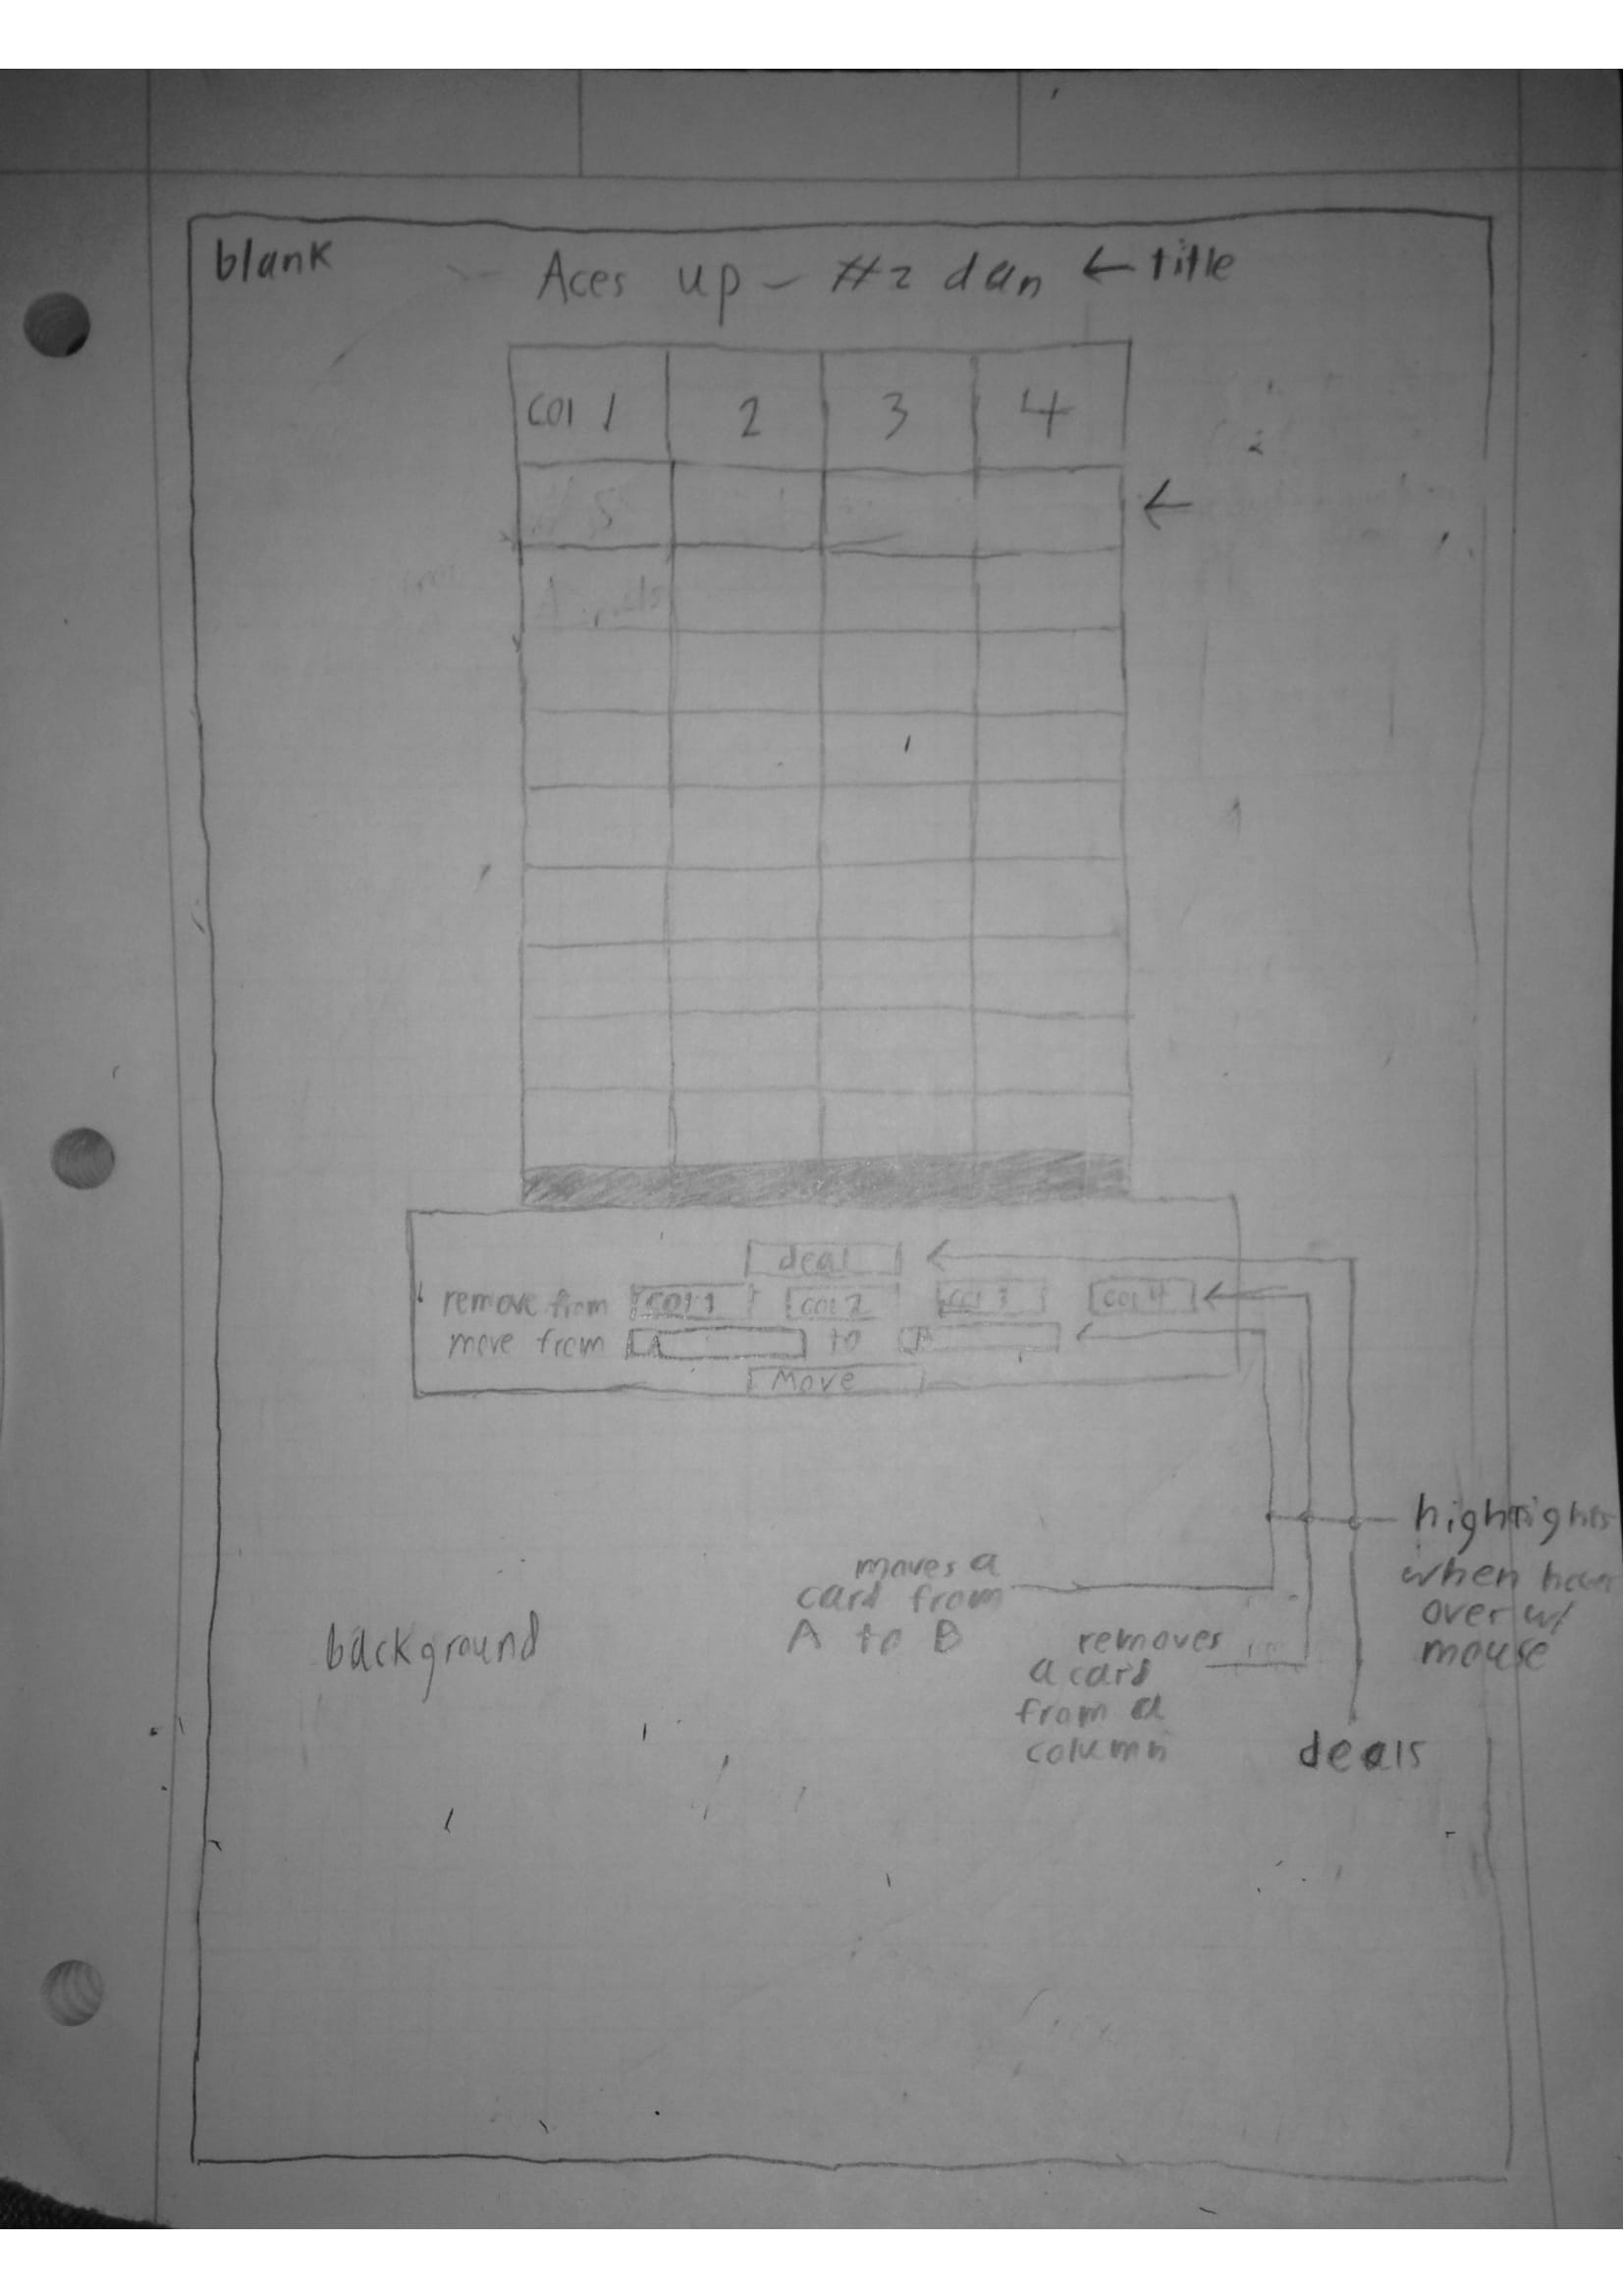 blank
Aces up - #2 dan ← title
col 1 2 3 4
←
deal
remove from col 1 col 2 col 3 col 4
move from A to B
Move
highlights
when hover
over w/
mouse
moves a
card from
A to B
removes
a card
from a
column
deals
background